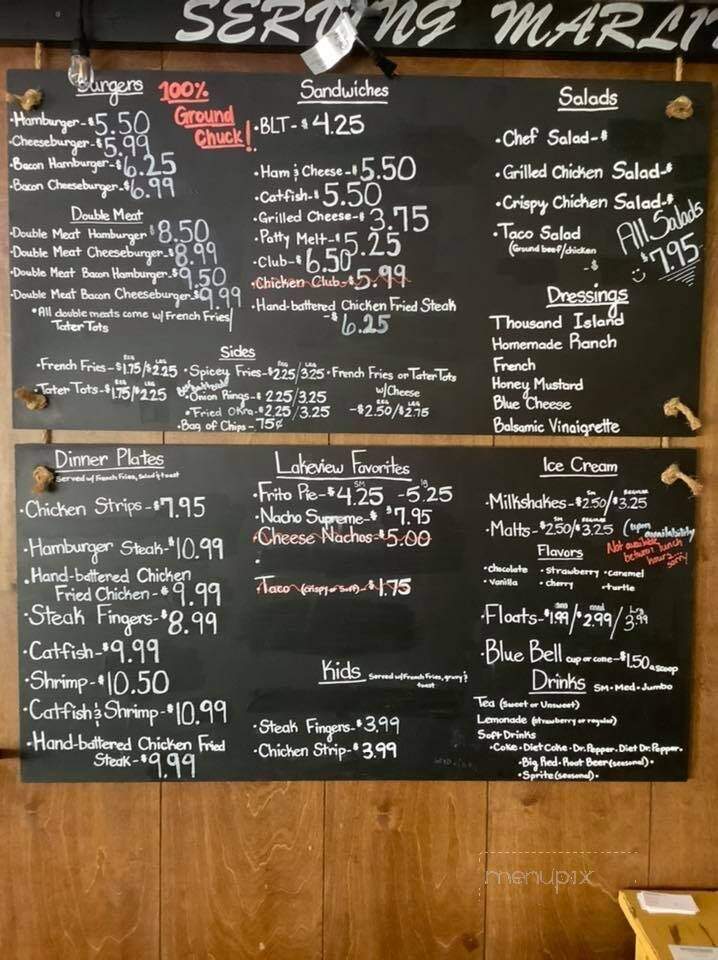 SERVING MARLI
Burgers
100%
Ground
Chuck!
•Hamburger-$5.50
•Cheeseburger-$5.99
•Bacon Hamburger-$6.25
•Bacon Cheeseburger-$6.99
Double Meat
•Double Meat Hamburger $8.50
•Double Meat Cheeseburger-$8.99
•Double Meat Bacon Hamburger-$9.50
•Double Meat Bacon Cheeseburger-$9.99
*All double meats come w/ French Fries/
Tater Tots
Sandwiches
•BLT-$4.25
•Ham & Cheese-$5.50
•Catfish-$5.50
•Grilled Cheese-$3.75
•Patty Melt-$5.25
•Club-$6.50
•Chicken Club-$5.99
•Hand-battered Chicken Fried Steak
-$6.25
Salads
•Chef Salad-$
•Grilled Chicken Salad-$
•Crispy Chicken Salad-$
•Taco Salad
(Ground beef/chicken
-$
All Salads
$7.95
Dressings
Thousand Island
Homemade Ranch
French
Honey Mustard
Blue Cheese
Balsamic Vinaigrette
Sides
REG LRG
•French Fries-$1.75/$2.25
REG LRG
•Tater Tots-$1.75/$2.25
REG LRG
•Spicey Fries-$2.25/3.25
•Onion Rings-$2.25/3.25
•Fried Okra-$2.25/3.25
•Bag of Chips-.75¢
•French Fries or Tater Tots
w/Cheese
REG LRG
-$2.50/$2.75
Dinner Plates
Served w/ French Fries, Salad & toast
•Chicken Strips-$7.95
•Hamburger Steak-$10.99
•Hand-battered Chicken
Fried Chicken-$9.99
•Steak Fingers-$8.99
•Catfish-$9.99
•Shrimp-$10.50
•Catfish & Shrimp-$10.99
•Hand-battered Chicken Fried
Steak-$9.99
Lakeview Favorites
SM lg
•Frito Pie-$4.25 -5.25
•Nacho Supreme-$ $7.95
•Cheese Nachos-$5.00
•
•Taco (crispy or soft)-$1.75
Kids Served w/ French Fries, gravy &
toast
•Steak Fingers-$3.99
•Chicken Strip-$3.99
Ice Cream
SM REGULAR
•Milkshakes-$2.50/$3.25
SM REGULAR
•Malts-$2.50/$3.25 (upon
availability
Not available
between lunch
hours...
sorry
Flavors
•chocolate •strawberry •caramel
•vanilla •cherry •turtle
sm med lrg
•Floats-$1.99/$2.99/3.99
•Blue Bell cup or cone-$1.50 a scoop
Drinks SM•Med•Jumbo
Tea (Sweet or Unsweet)
Lemonade (strawberry or regular)
Soft Drinks
•Coke•Diet Coke•Dr.Pepper•Diet Dr.Pepper•
•Big Red•Root Beer(seasonal)•
•Sprite(seasonal)•
menupix